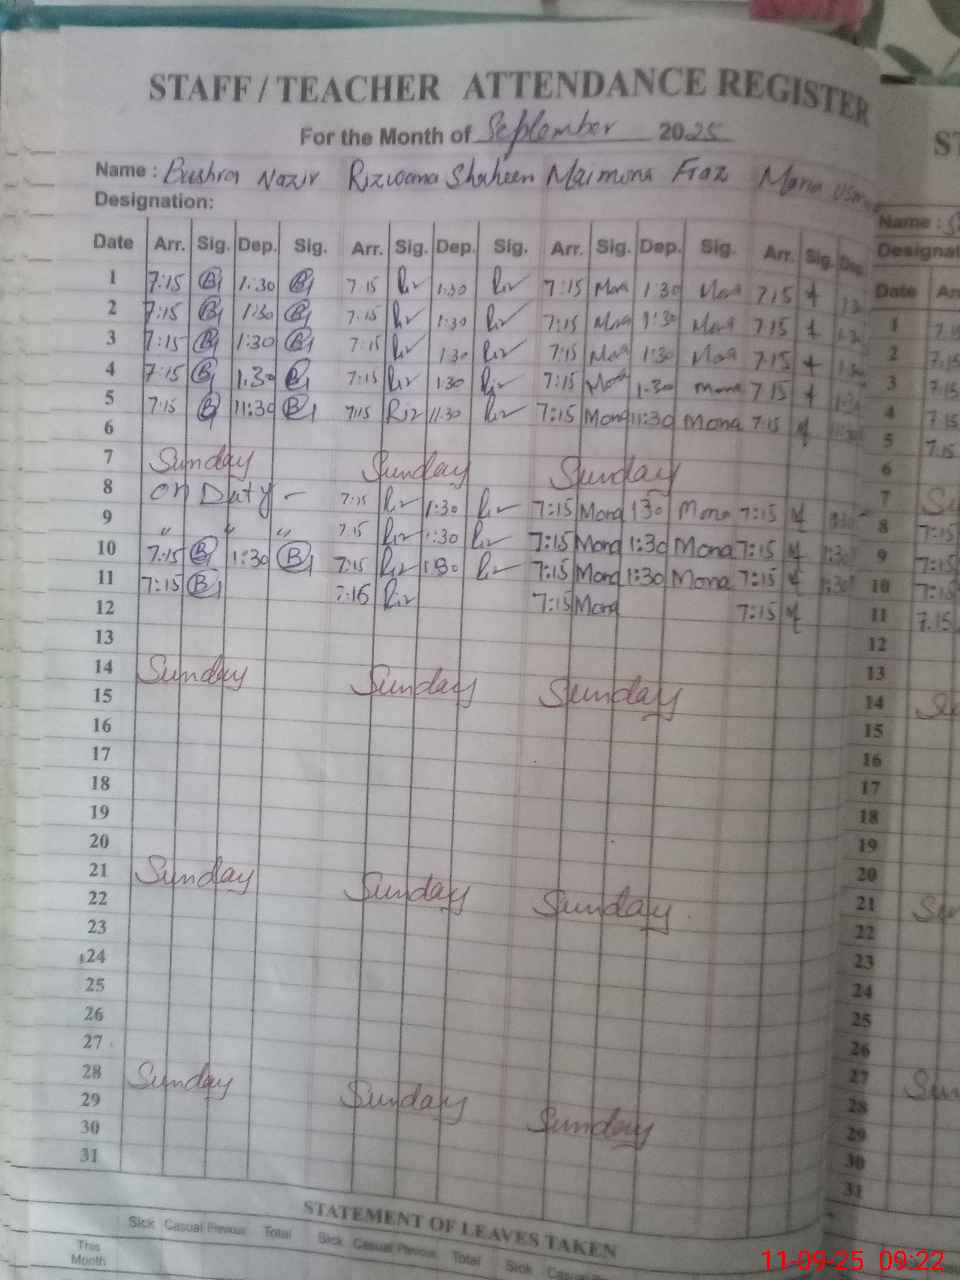 STAFF / TEACHER ATTENDANCE REGISTER
For the Month of September 2025
Name : Bushra Nazir Rizwana Shaheen Maimona Fraz Maria
Designation:
Date Arr. Sig. Dep. Sig. Arr. Sig. Dep. Sig. Arr. Sig. Dep. Sig. Arr. Sig. Dep.
1 7:15 B 1:30 B 7:15 Riz 1:30 Riz 7:15 Mona 1:30 Mona 7:15
2 7:15 B 1:30 B 7:15 Riz 1:30 Riz 7:15 Mona 1:30 Mona 7:15
3 7:15 B 1:30 B 7:15 Riz 1:30 Riz 7:15 Mona 1:30 Mona 7:15
4 7:15 B 1:30 B 7:15 Riz 1:30 Riz 7:15 Mona 1:30 Mona 7:15
5 7:15 B 11:30 B 7:15 Riz 11:30 Riz 7:15 Mona 11:30 Mona 7:15
6
7 Sunday Sunday Sunday
8 On Duty - 7:15 Riz 1:30 Riz 7:15 Mona 1:30 Mona 7:15
9 " " " 7:15 Riz 1:30 Riz 7:15 Mona 1:30 Mona 7:15 1:30
10 7:15 B 1:30 B 7:15 Riz 1:30 Riz 7:15 Mona 1:30 Mona 7:15 1:30
11 7:15 B 7:15 Riz 7:15 Mona 7:15
12
13
14 Sunday Sunday Sunday
15
16
17
18
19
20
21 Sunday Sunday Sunday
22
23
24
25
26
27
28 Sunday Sunday Sunday
29
30
31
STATEMENT OF LEAVES TAKEN
Sick Casual Previous Total Sick Casual Previous Total Sick Casual
This
Month
Name :
Designat
Date
1
2 7:15
3 7:15
4 7:15
5 7.15
6
7
8 7:15
9 7:15
10 7:15
11 7.15
12
13
14
15
16
17
18
19
20
21
22
23
24
25
26
27
28
29
30
31
11-09-25 09:22